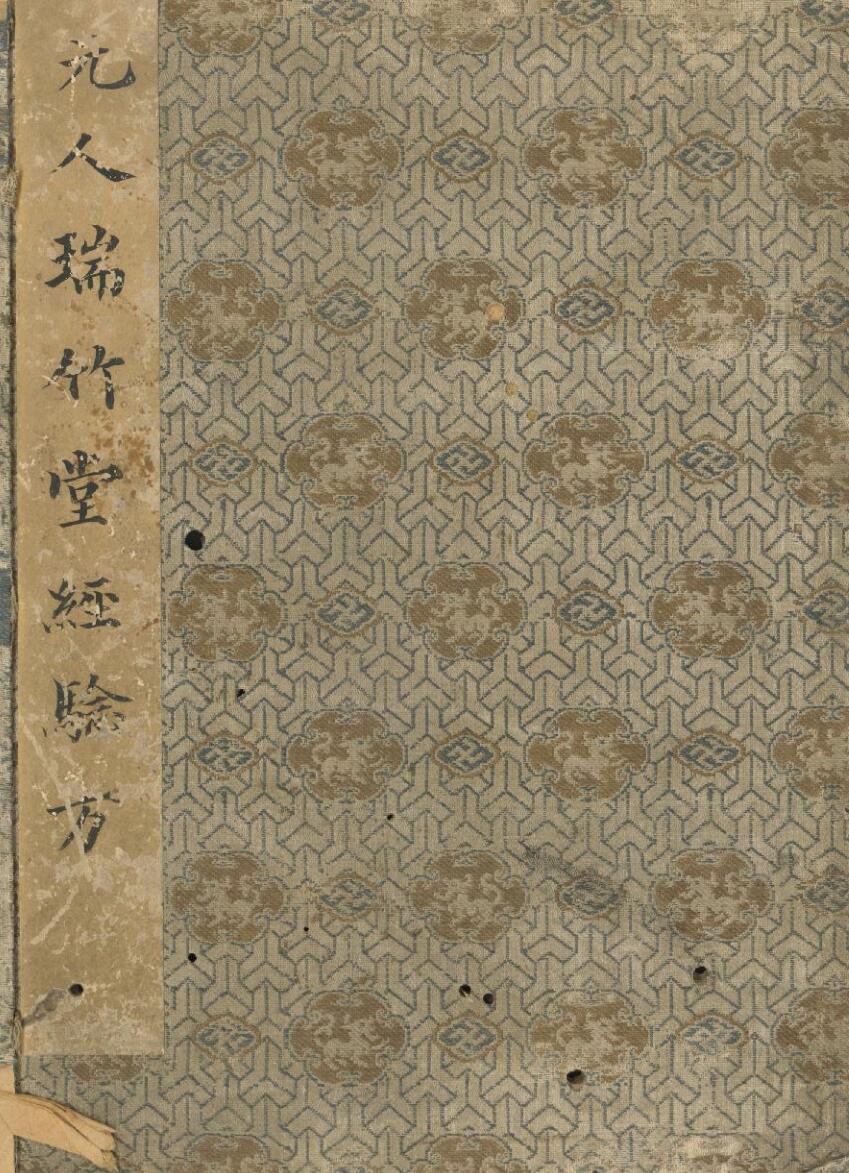 元人瑞竹堂經驗方